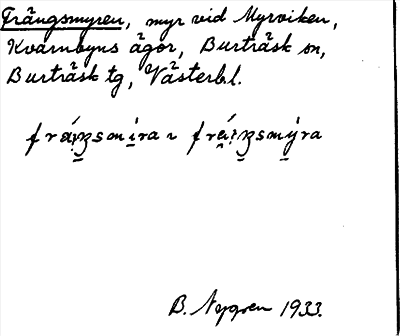 Frängsmyren, myr vid Myrviken,
Kvarnbyns ägor, Burträsk sn,
Burträsk tg, Västerbl.
B. Nygren 1933.